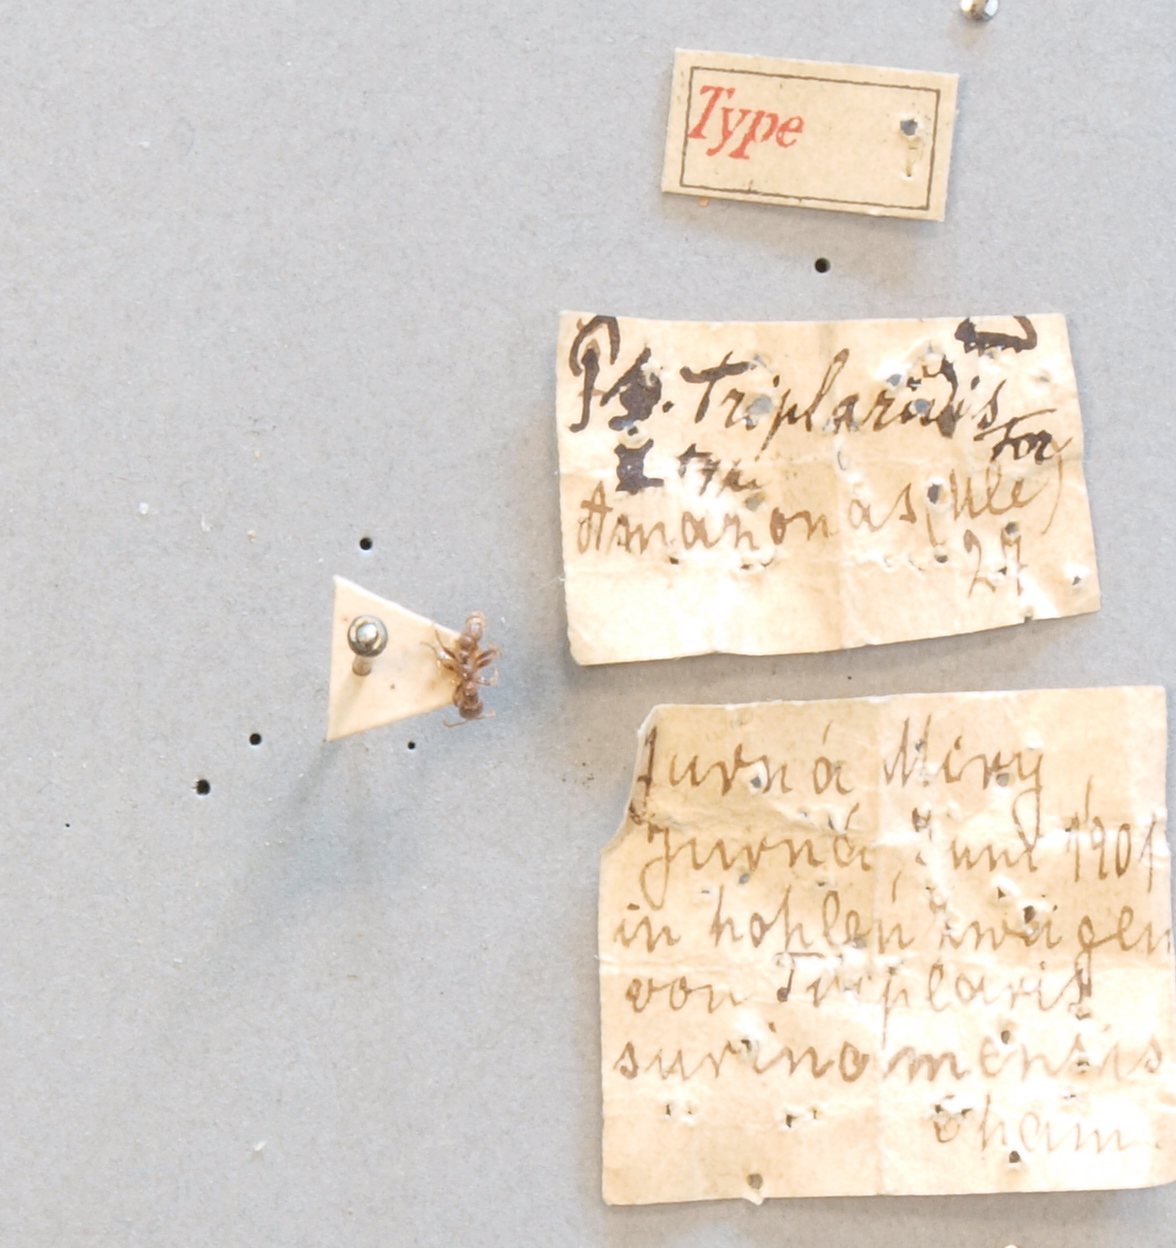 Type
Ps. Triplaridis
For
Amazonas (Ule)
27
Juruá Miry
Juruá, Juni 1901
in hohlen Zweigen
von Triplaris
surinamensis
Cham.